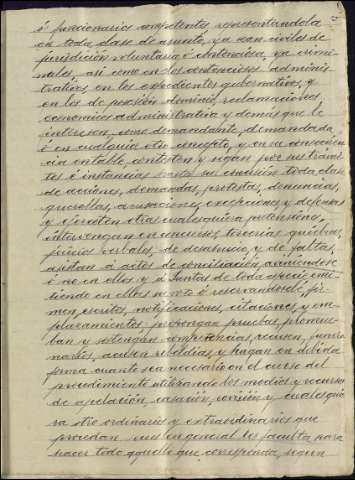 ó funcionarios competentes, representandola
en toda clase de asuntos, ya sean civiles de
jurisdicion voluntaria ó contenciosa, ya crimi-
nales, así como en los contenciosos adminis-
trativos, en los expedientes gubernativos, y
en los de posesión, dominio, reclamaciones
economico administrativa y demás que le
interesen, como demandante, demandada
ó en cualquier otro concepto, y en su consecuen-
cia entable, contesten y sigan por sus trami-
tes é instancias hasta su conclusión toda clase
de acciones, demandas, protestas, denuncias,
querellas, acusaciones, excepciones y defensas
y ejerciten otras cualesquiera pretensiones,
intervengan en concursos, tercerias, quiebras,
juicios verbales, de desahucio, y de faltas,
asistan á actos de conciliación, aviniendose
ó no en ellos y á Juntas de toda especie emi-
tiendo en ellas su voto ó reservandoselo, fir-
men escritos, notificaciones, citaciones, y em-
plazamientos, propongan pruebas, promue-
ban y sostengan competencias, recusen, funcio-
narios, acusen rebeldias y hagan en debida
forma cuanto sea necesario en el curso del
procedimiento utilizando los medios y recursos
de apelación, casación, revisión y cualesquie-
ra otro ordinarios y extraordinarios que
procedan pues en general les faculta para
hacer todo aquello que corresponda, segun